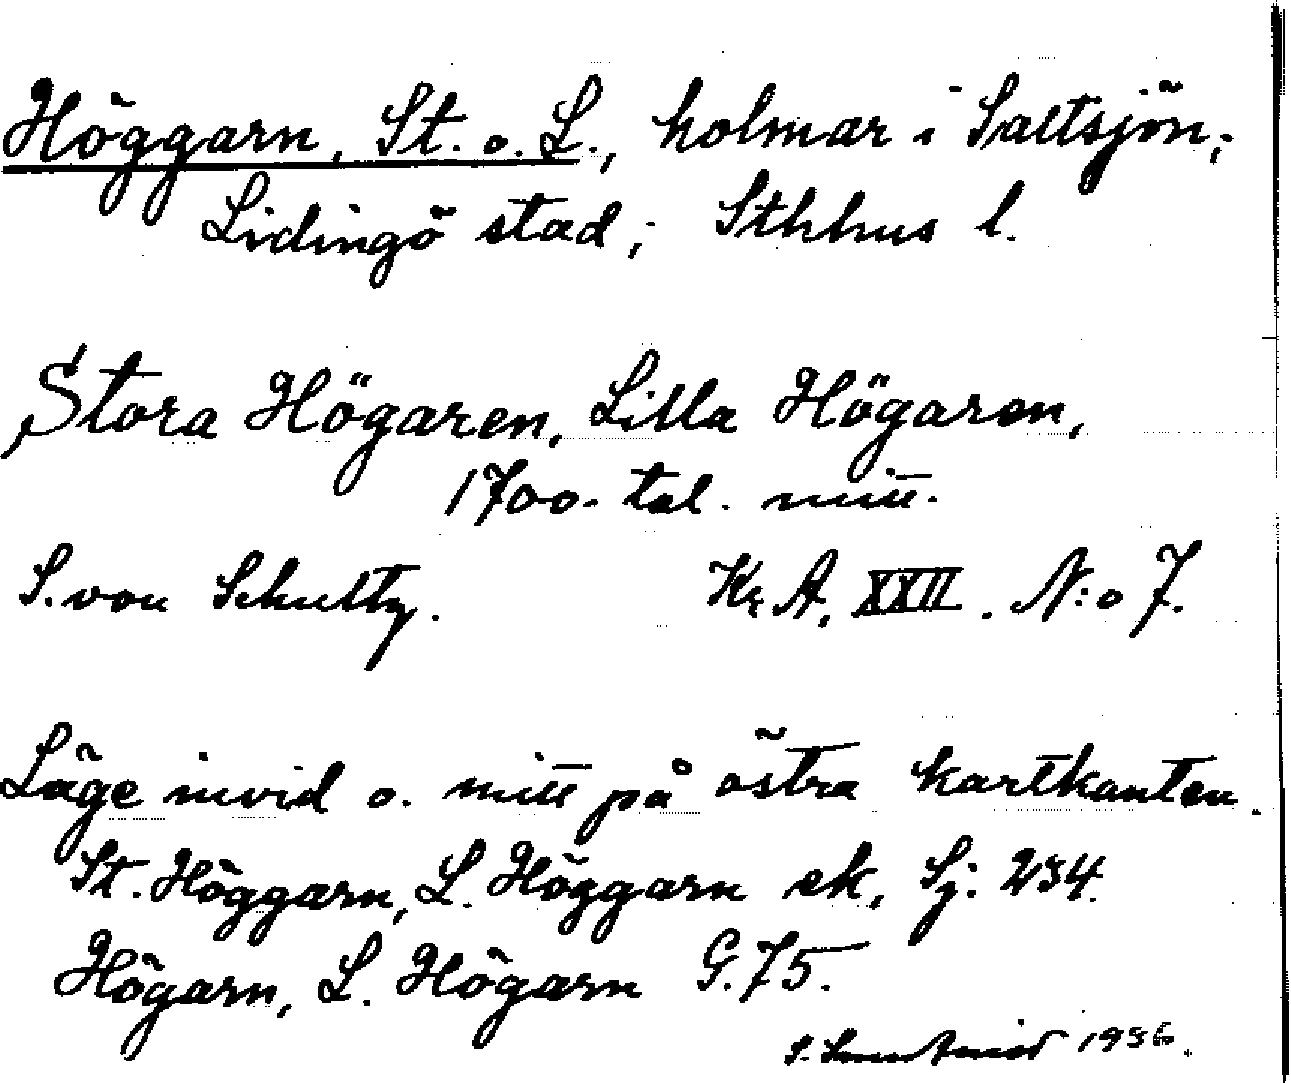 Höggarn, St. o. L., holmar i Saltsjön,
Lidingö stad, Sthlms l.
Stora Högaren, Lilla Högaren,
1700-tal. mitt.
S. von Schultz. Kr A. XXII. N:o 7.
Läge invid o. mitt på östra kartkanten.
St. Höggarn, L. Höggarn ek. Sj. 234.
Högarn, L. Högarn G. 75.
1936.